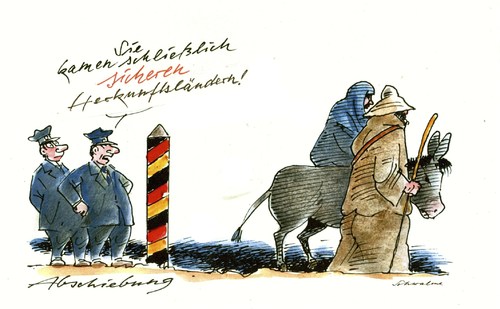 Sie
kamen schließlich
sicheren
Herkunftsländern!
Abschiebung
Schwalme